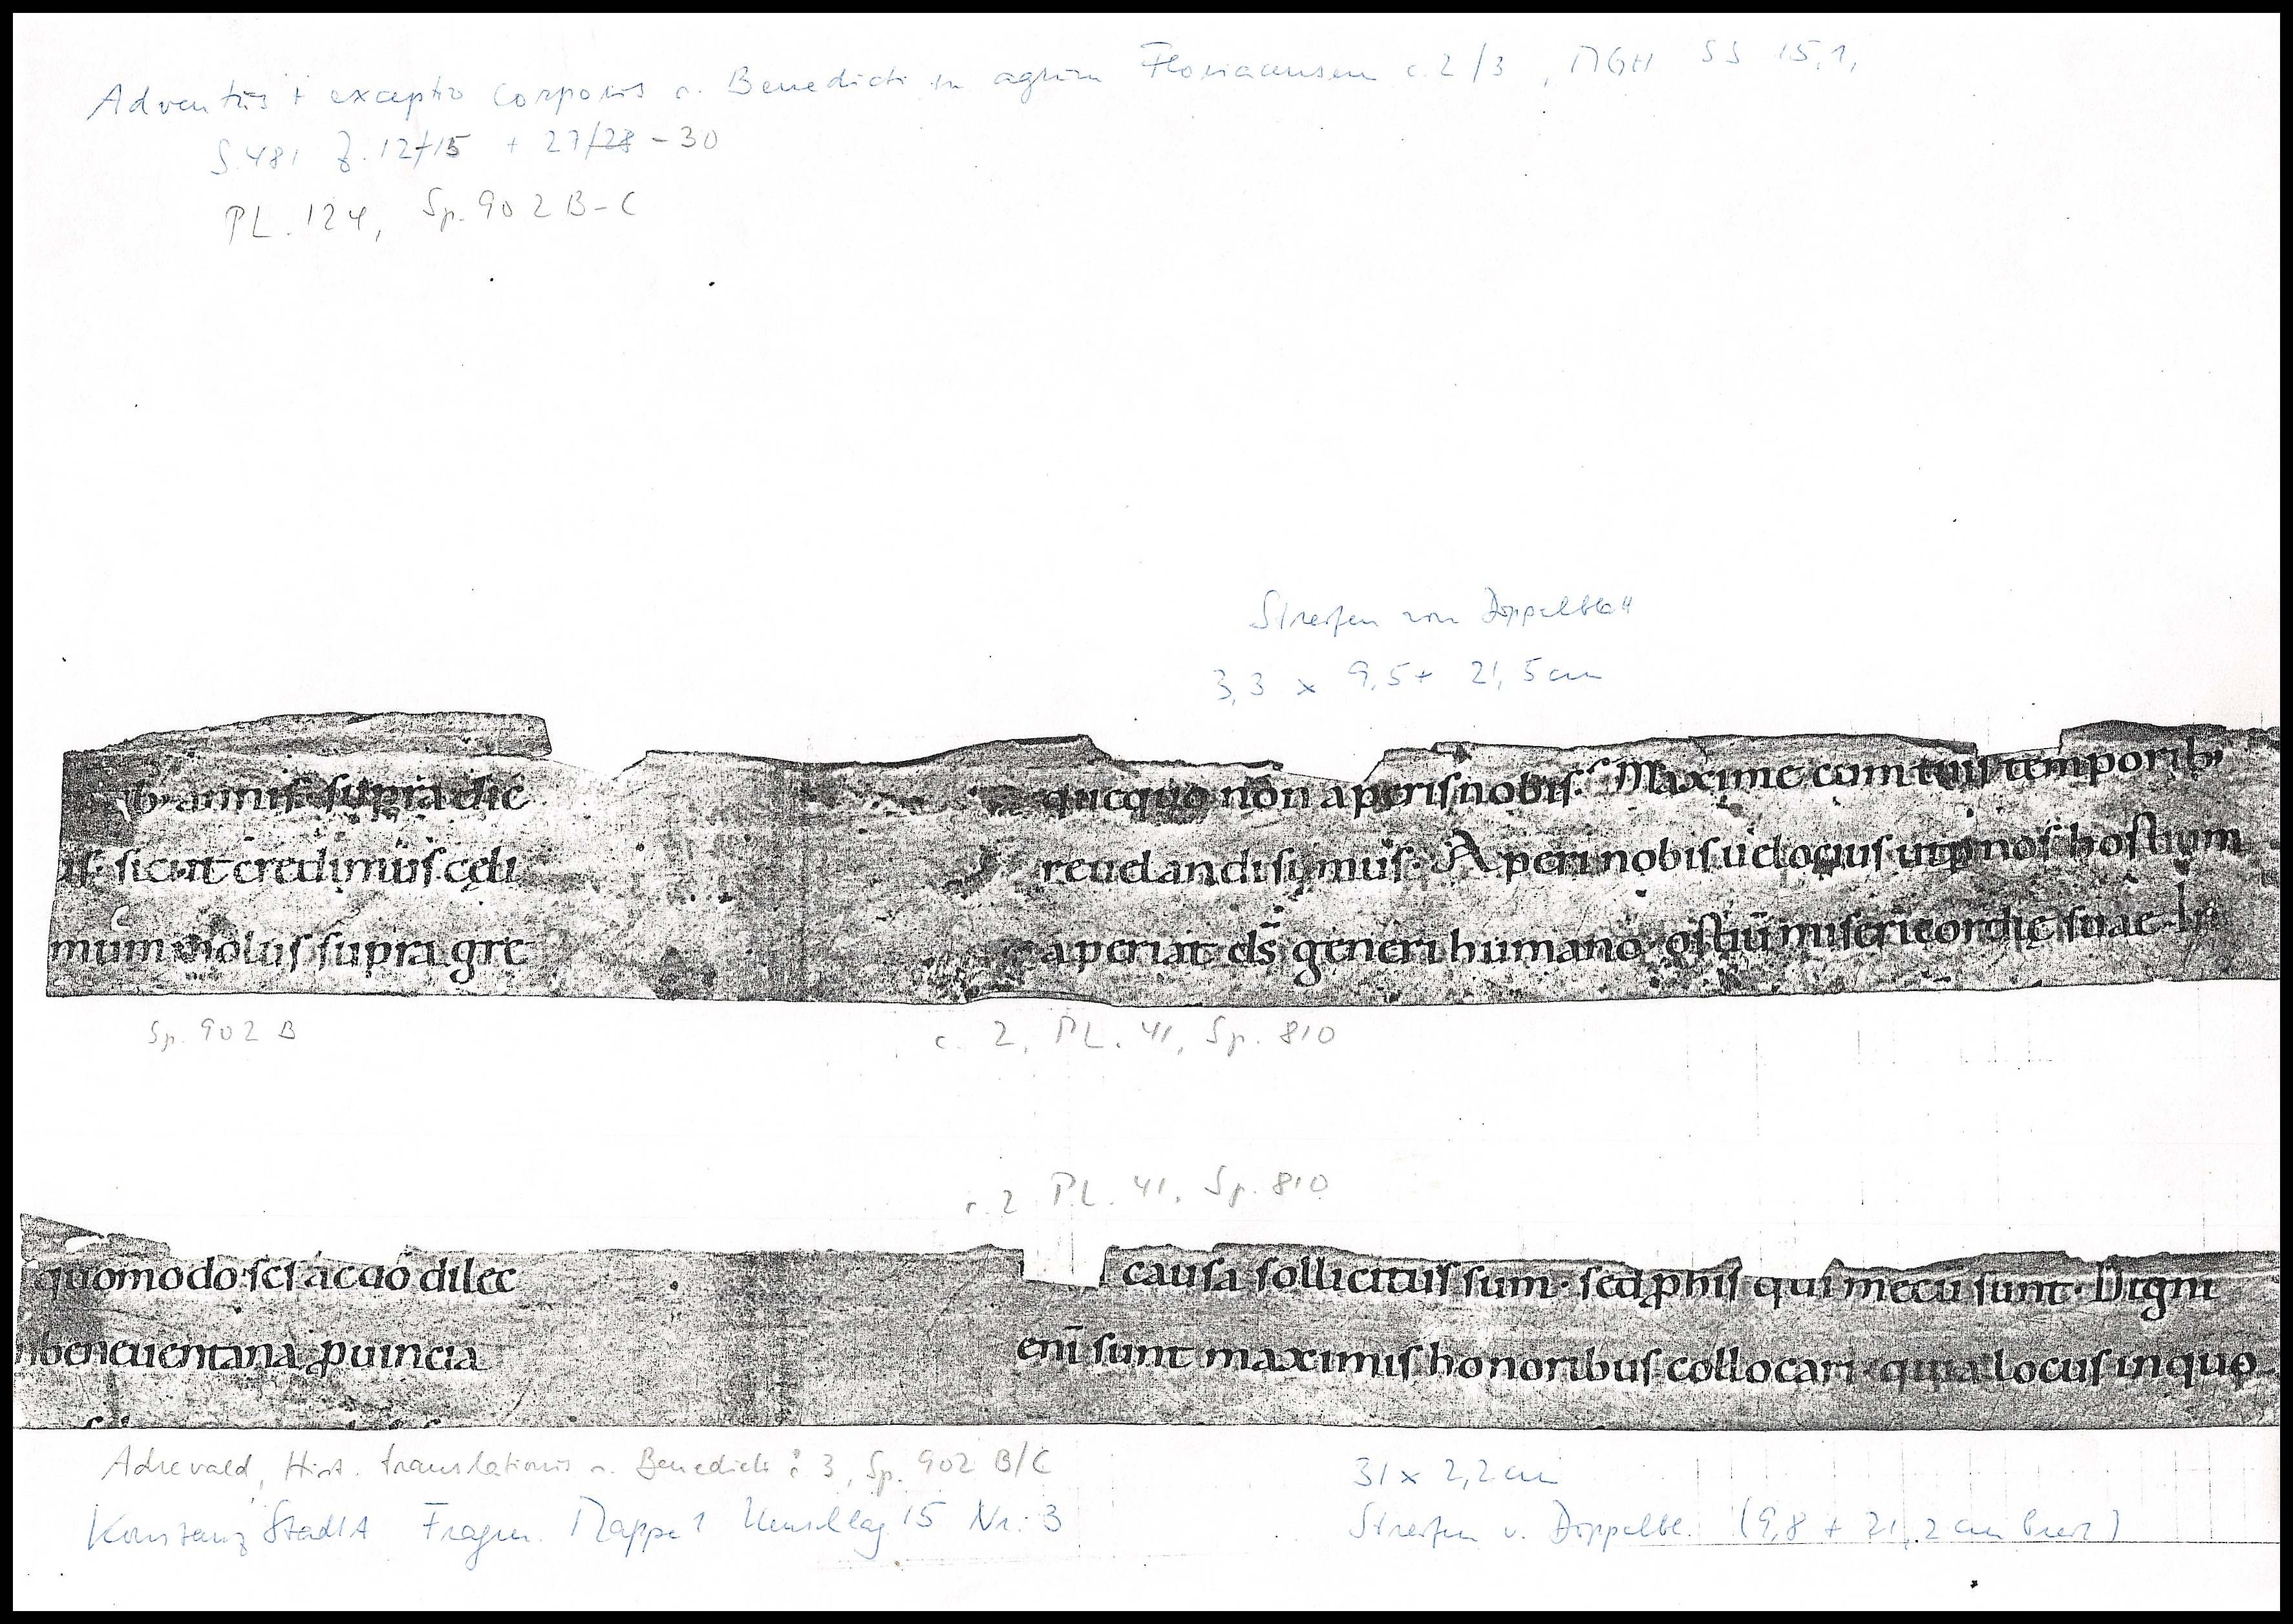 Adventus + exceptio corporis s. Benedicti in agrum Floriacensem c. 2/3, MGH SS 15,1,
S. 481 Z. 12/15 + 27/28 - 30
PL. 124, Sp. 902 B-C
Streifen von Doppelblatt
3,3 x 9,5 + 21,5 cm
b; annis. supra dic
us. sicut credimus cęli
mummolus supra gre
quicquid non aperis nobis. Maxime cum tuis temporib;
reuelandi simus. Aperi nobis uelocius ut p nos hostium
aperiat ds̄ generi humano. ostiū misericordię suae. In
Sp. 902 B
c. 2, PL. 41, Sp. 810
c. 2 PL. 41, Sp. 810
quomodo scī accio dilec
beneuentana ꝓuincia
causa sollicitus sum. sed ꝓ his qui mecū sunt. Digni
enī sunt maximis honoribus collocari quia locus in quo
Adrevald, Hist. translationis s. Benedicti c. 3, Sp. 902 B/C
31 x 2,2 cm
Konstanz StadtA Fragm. Mappe 1 Umschlag 15 Nr. 3
Streifen v. Doppelbl. (9,8 + 21,2 cm breit)